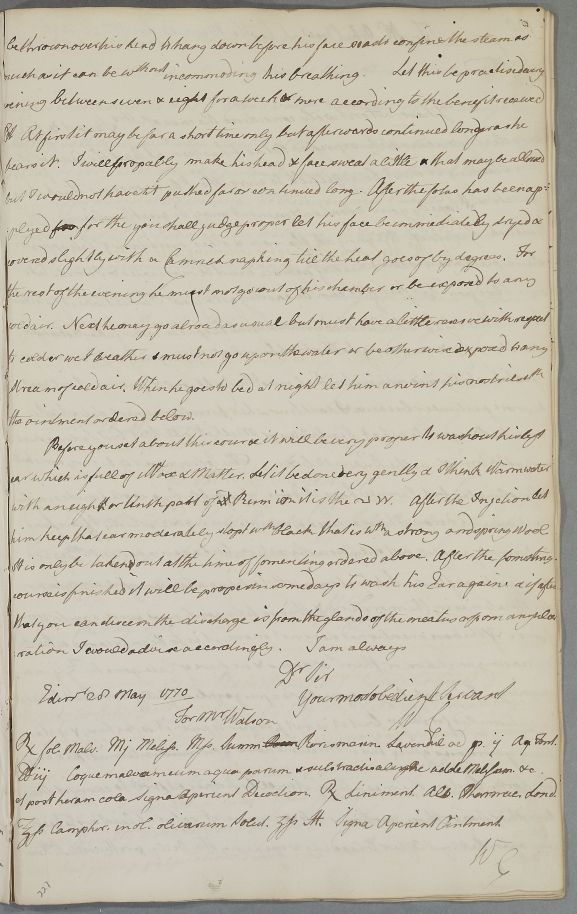 be thrown over his head to hang down before his face so as to confine the steam as
much as it can be without incommoding his breathing. Let this be practised every
evening between seven & eight for a week or more according to the benefit received
At first it may be for a short time only but afterwards continued longer as he
bears it. I will propably make his head & face sweat a little & that may be allowed
but I would not have it pushed far or continued long. After the fotus has been ap=
=plyed for the you shall judge proper let his face be immediately dryed &
covered slightly with a Cambrick napking till the heat goes of by degrees. For
the rest of the evening he must not go out of his chamber or be exposed to any
cold air. Next he may go abroad as usual but must have a little reserve with regard
to cold or wet weather & must not go upon the water or be otherwise exposed to any
stream of cold air. When he goes to bed at night let him anoint his nostrils wth
the ointment ordered below.
Before you set about this course it will be very proper to wash out his left
ear which is full of Wax & Matter. Let it be done very gently & I think Warm water
with an eight or tinth part of is the After the Injection let
him keep that ear moderately stopt wth black that is wth a strong and spring Wool
It is only be taken out at the time of fomenting ordered above. After the fomenting-
course is finished it will be proper in some days to wash his Ear again & if after
that you can discern the discharge is from the glands of the meatus or from any ulce
ration I would advise accordingly. I am always
Dr Sir
Edinr 28 May 1770 Your most obedient Servant
For Mr Watson W C
Rx fol. Malv. Mj Meliss. Mss. Summ Rorismarin Lavendul aa p. ij Aq Font.
℔ iij Coque malvam in aqua parum & subtractis ab igne adde Melissam &c.
et post horam cola Signa Aperient Decoction. Rx Liniment. Alb. Pharmac. Lond.
℥ss Camphor. in ol. olivarum Solut. ʒss M. Signa Aperient Ointment
W C
227